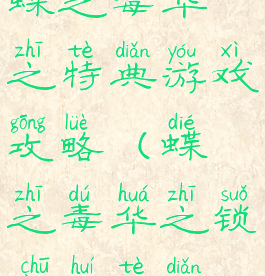 蝶之毒华
zhī tè diǎn yóu xì
之特典游戏
gōng lüè dié
攻略（蝶
zhī dú huá zhī suǒ
之毒华之锁
chū huí tè diǎn